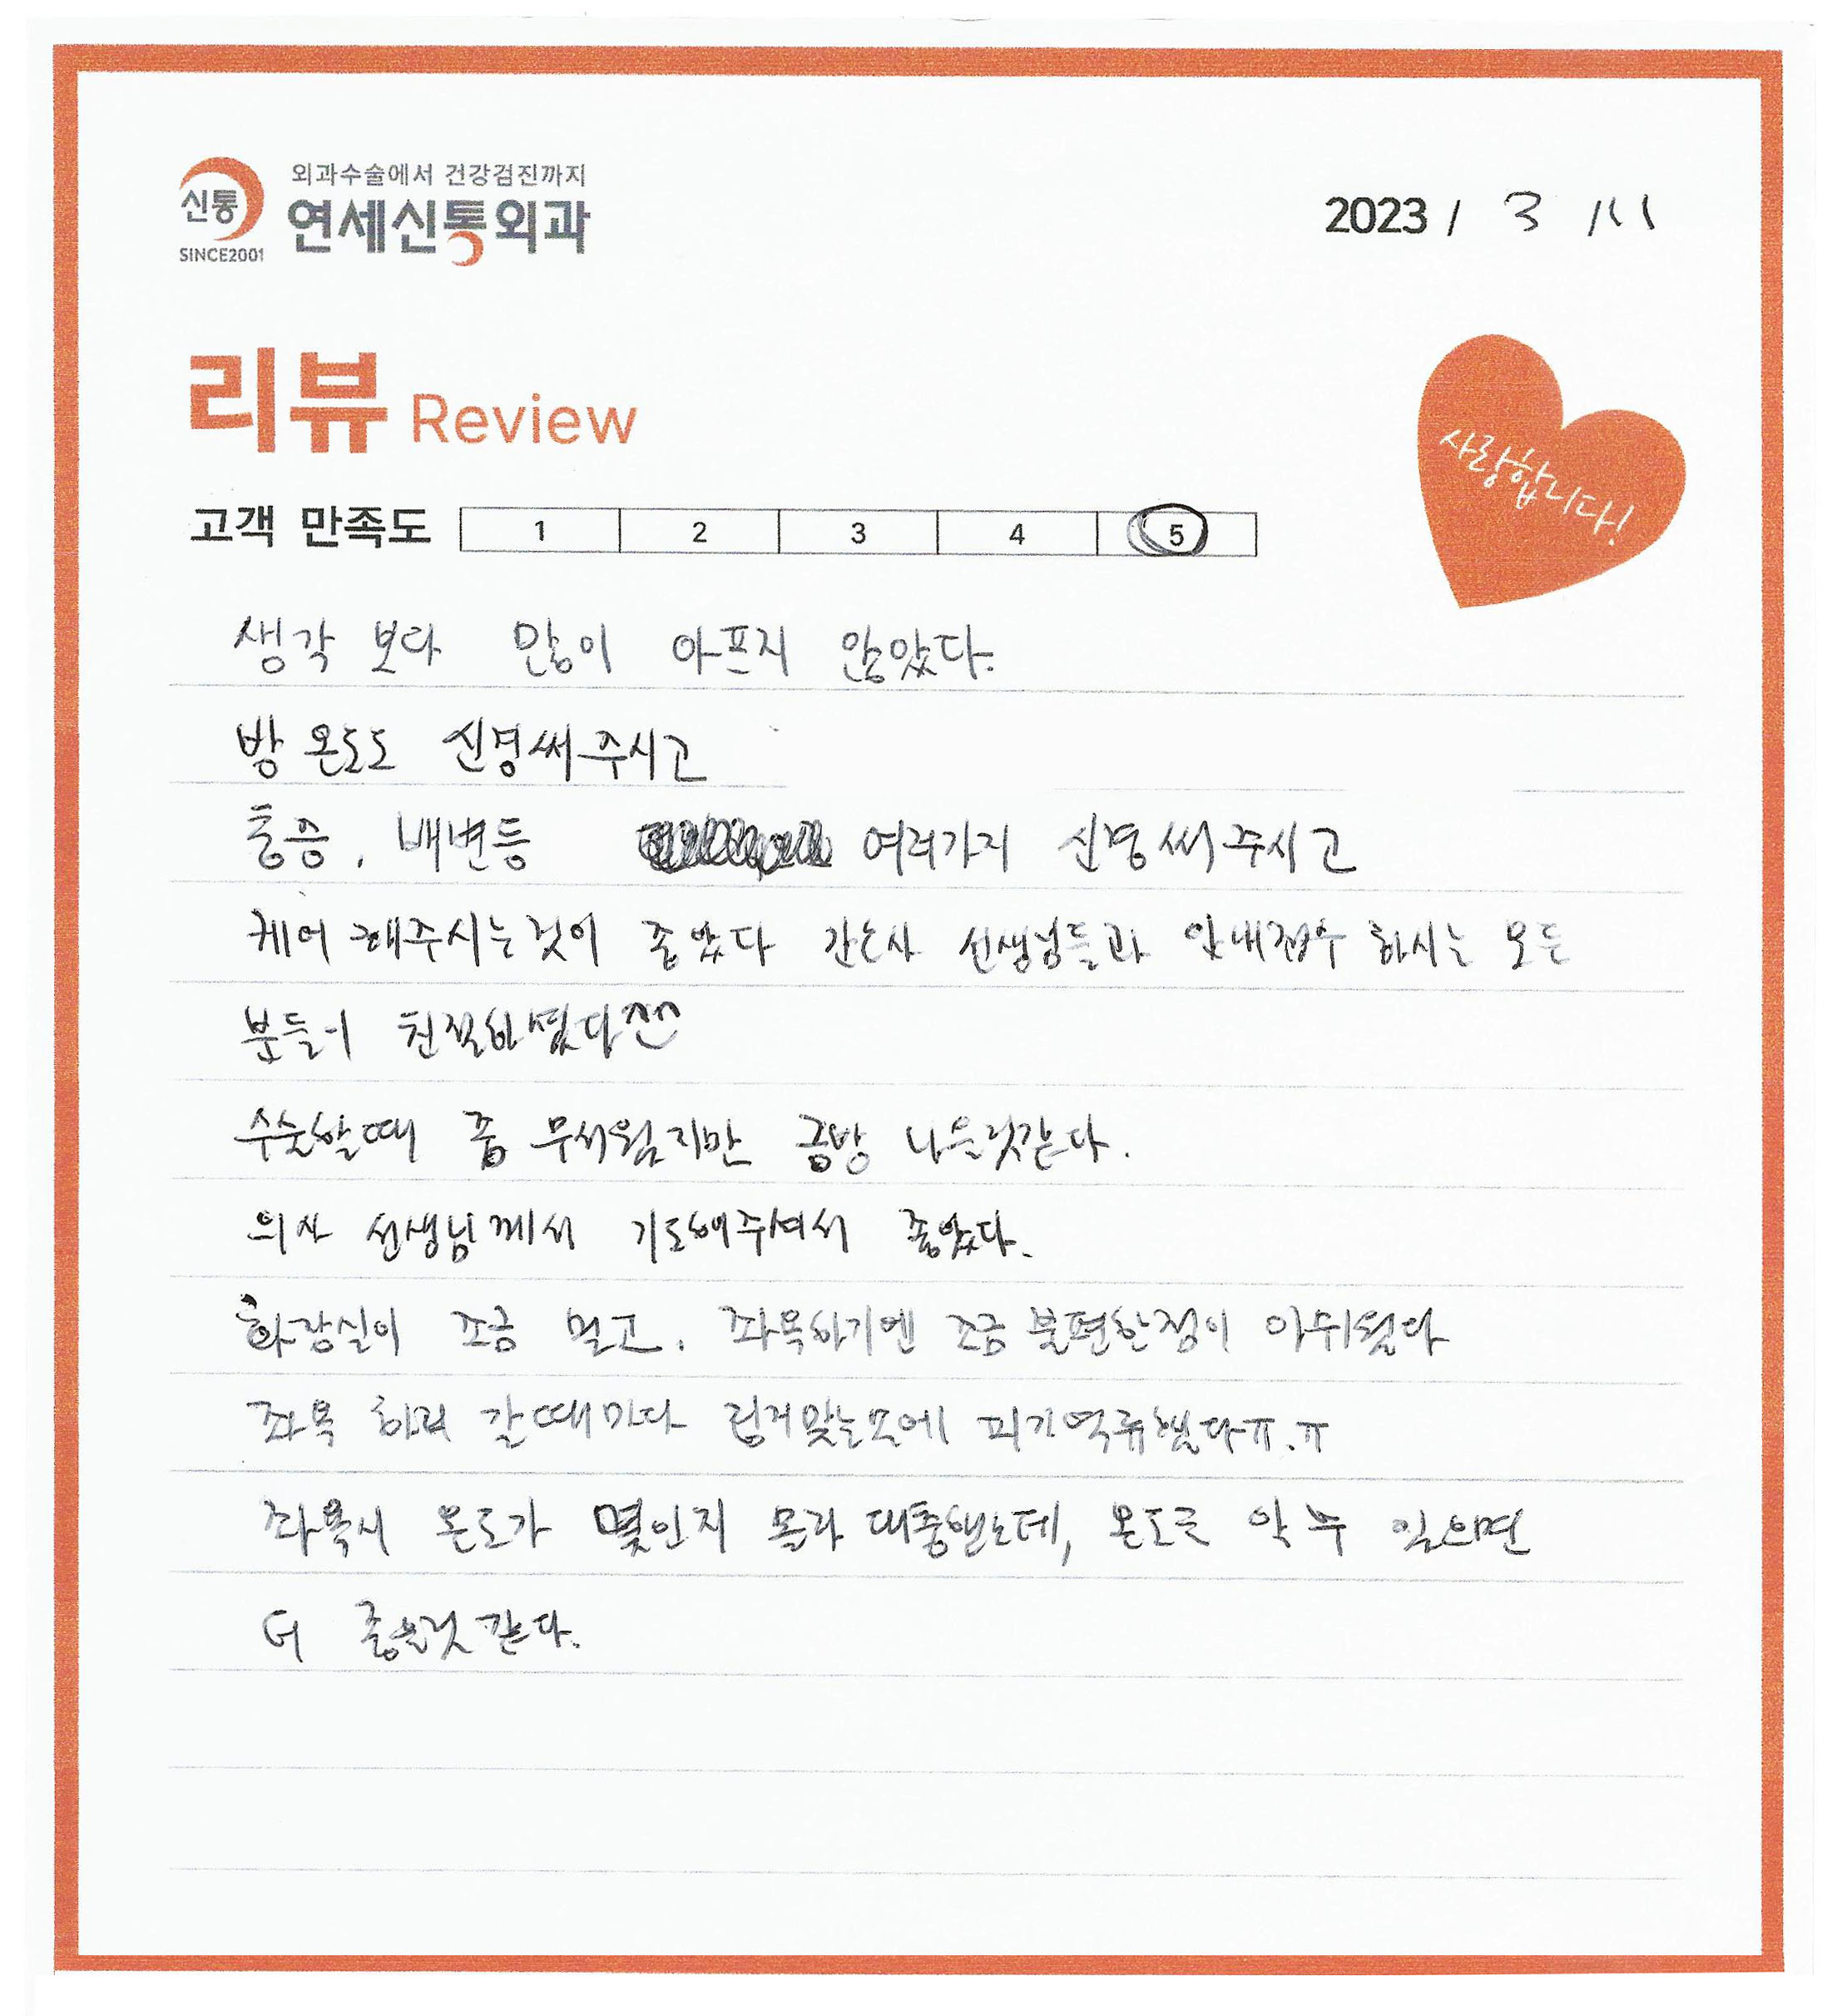 외과수술에서 건강검진까지
신통
연세신통외과
SINCE2001
2023 / 3 / 11
리뷰 Review
사랑합니다!
고객 만족도 1 2 3 4 5
생각 보다 많이 아프지 않았다.
방 온도도 신경써주시고
통증, 배변등 여러가지 신경써주시고
케어 해주시는것이 좋았다 간호사 선생님들과 안내접수 하시는 모든
분들이 친절하셨다^^
수술할때 좀 무서웠지만 금방 나은것같다.
의사 선생님께서 기도해주셔서 좋았다.
화장실이 조금 멀고, 좌욕하기엔 조금 불편한점이 아쉬웠다
좌욕 하러 갈때마다 링거맞는쪽에 피가역류했다ㅠ.ㅠ
좌욕시 온도가 몇인지 몰라 대충했는데, 온도를 알 수 있으면
더 좋을것 같다.